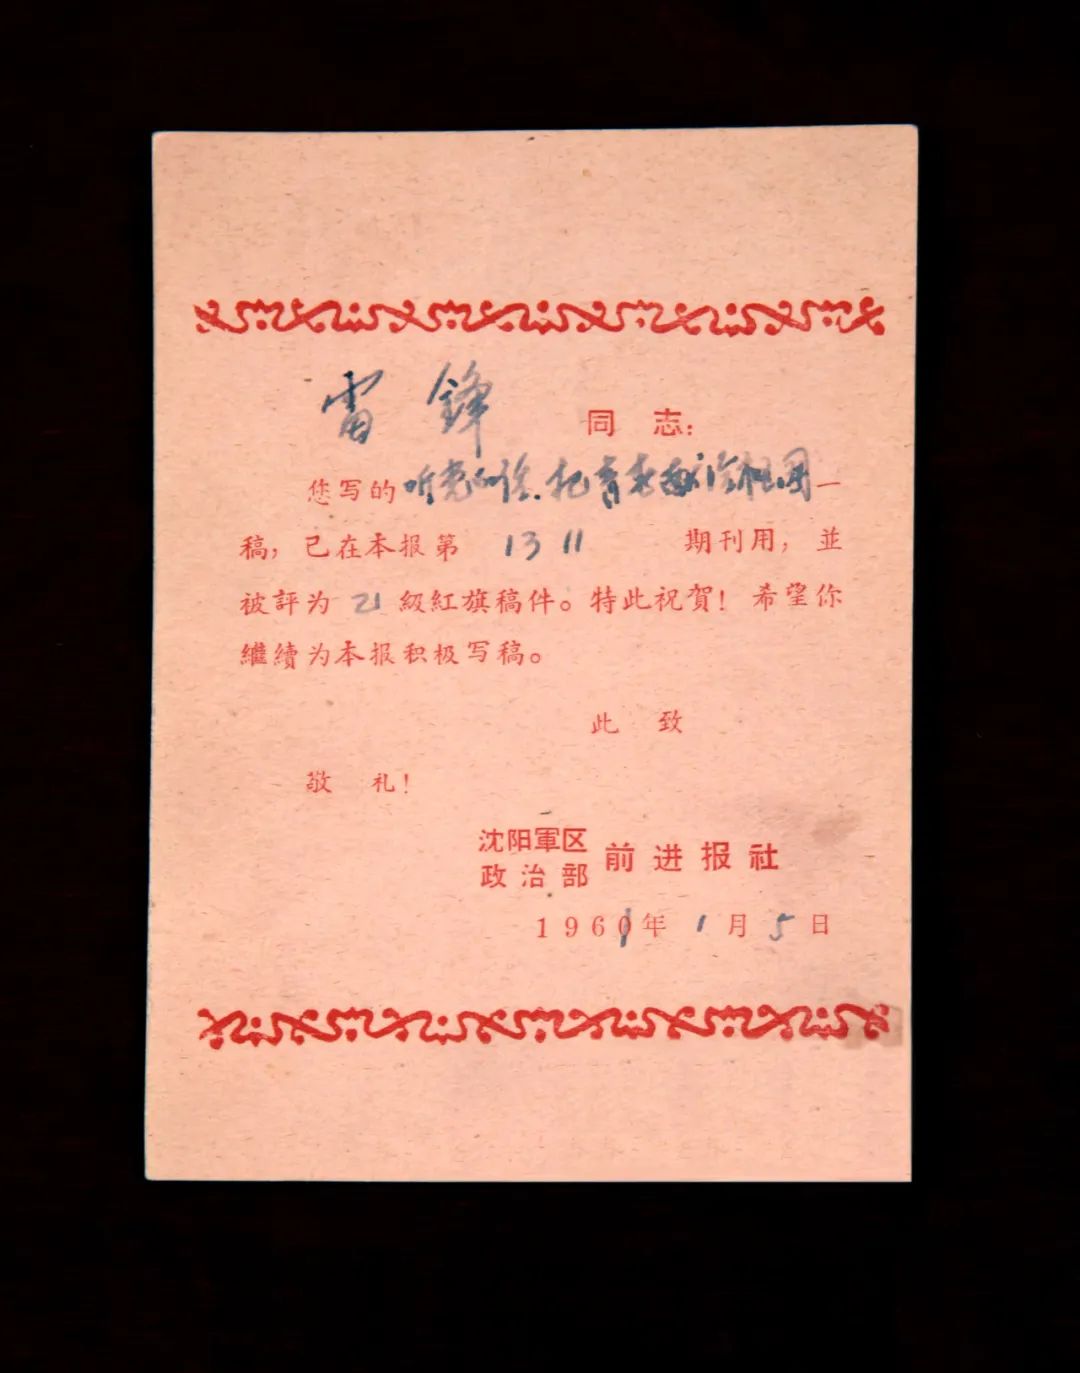 雷鋒 同志：
您写的听党的话，把青春献给祖国一
稿，已在本报第 1311 期刊用，並
被評为 21 級紅旗稿件。特此祝賀！希望你
繼續为本报积极写稿。
此致
敬礼！
沈阳軍区
政治部 前进报社
1961年 1月 5日